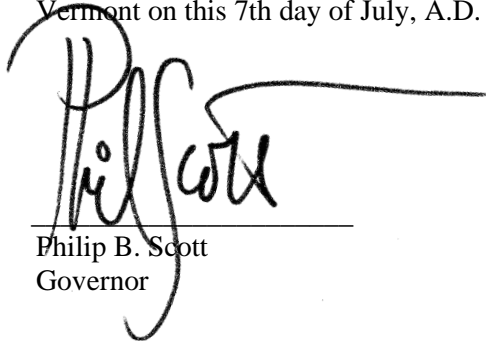 Vermont on this 7th day of July, A.D.
Phil Scott
Philip B. Scott
Governor